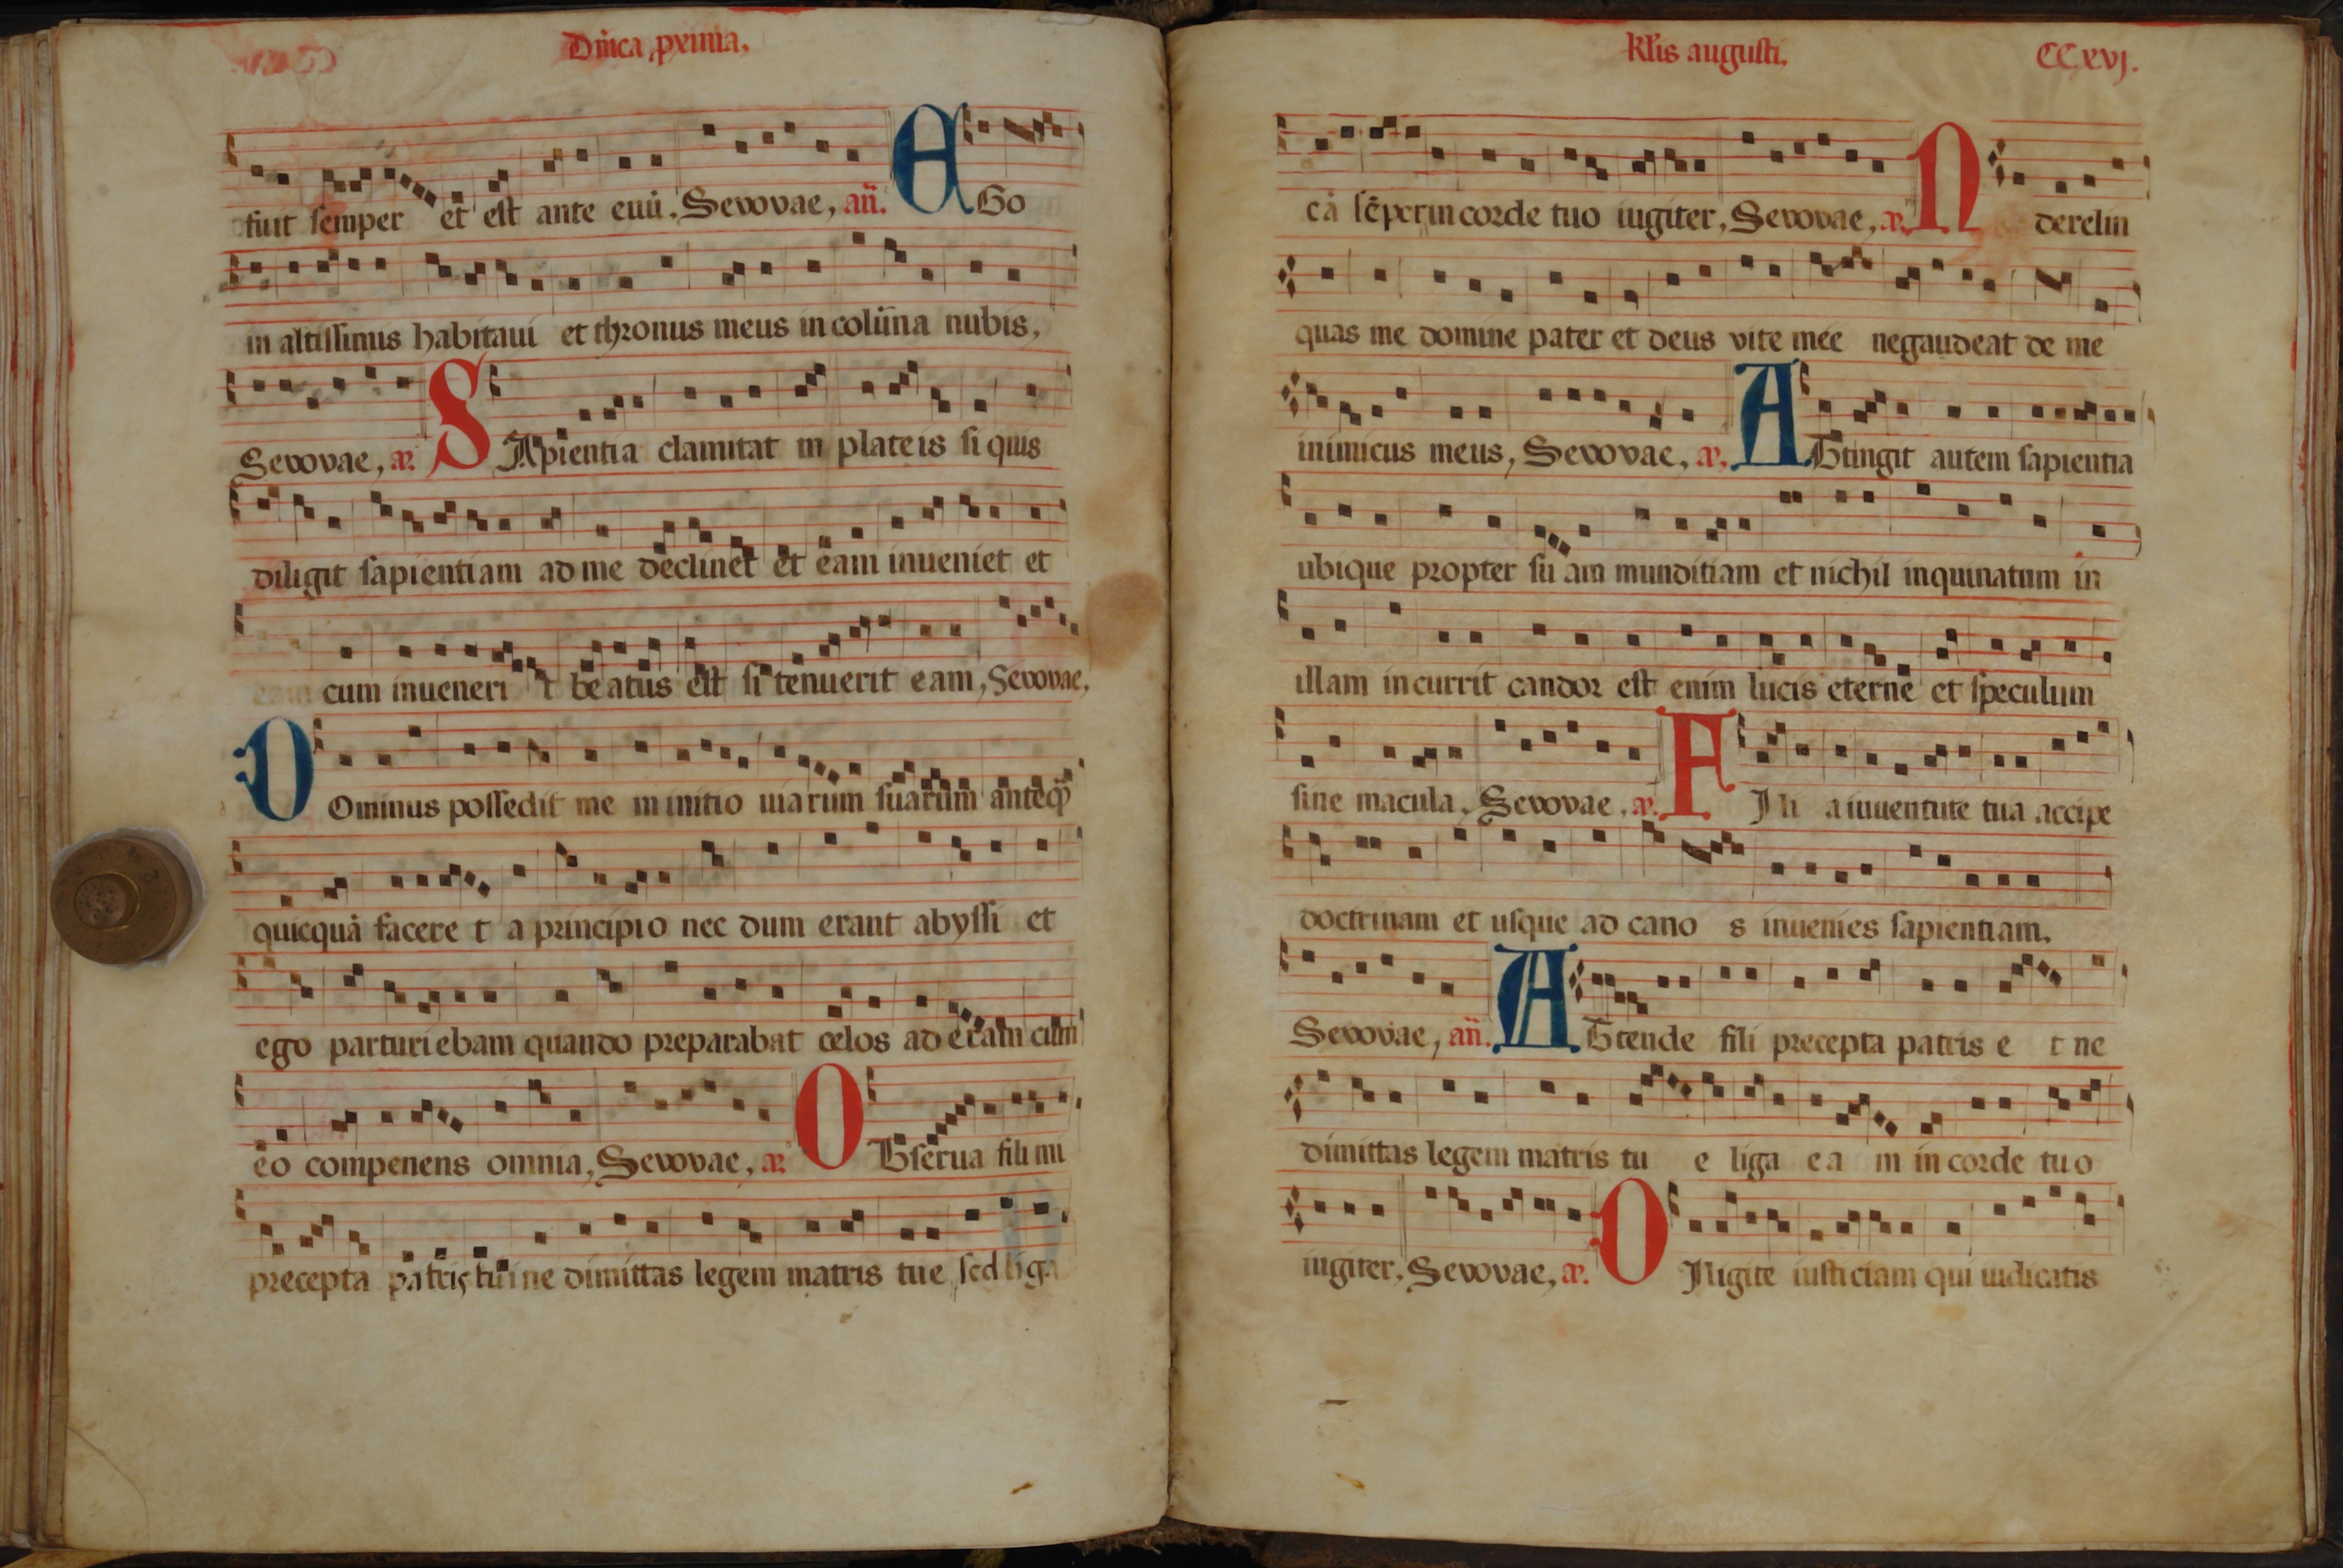 Dn̄ica ꝓxima,
fuit semper et est ante euū. Sevovae, an̄. EGo
in altissimus habitaui et thronus meus in colūna nubis,
Sevovae, a. SApientia clamitat in plateis si quis
diligit sapientiam ad me declinet et eam inueniet et
eam cum inuenerit beatus est si tenuerit eam, Sevovae,
DOminus possedit me in initio uiarum suarum anteq̄
quicquā faceret a principio nec dum erant abyssi et
ego parturiebam quando preparabat celos aderam cum
eo compenens omnia, Sevovae, a. OBserua fili mi
precepta patris tui ne dimittas legem matris tue sed liga
Kl̄is augusti, CCxvj.
eā sēper in corde tuo iugiter, Sevovae, a. N derelin
quas me domine pater et deus vite mee ne gaudeat de me
inimicus meus, Sevovae, a. ATtingit autem sapientia
ubique propter suam munditiam et nichil inquinatum in
illam incurrit candor est enim lucis eterne et speculum
sine macula, Sevovae, a. FIli a iuuentute tua accipe
doctrinam et usque ad canos inuenies sapientiam.
Sevovae, an̄. ATtende fili precepta patris et ne
dimittas legem matris tue liga eam in corde tuo
iugiter, Sevovae, a. DIligite iusticiam qui iudicatis